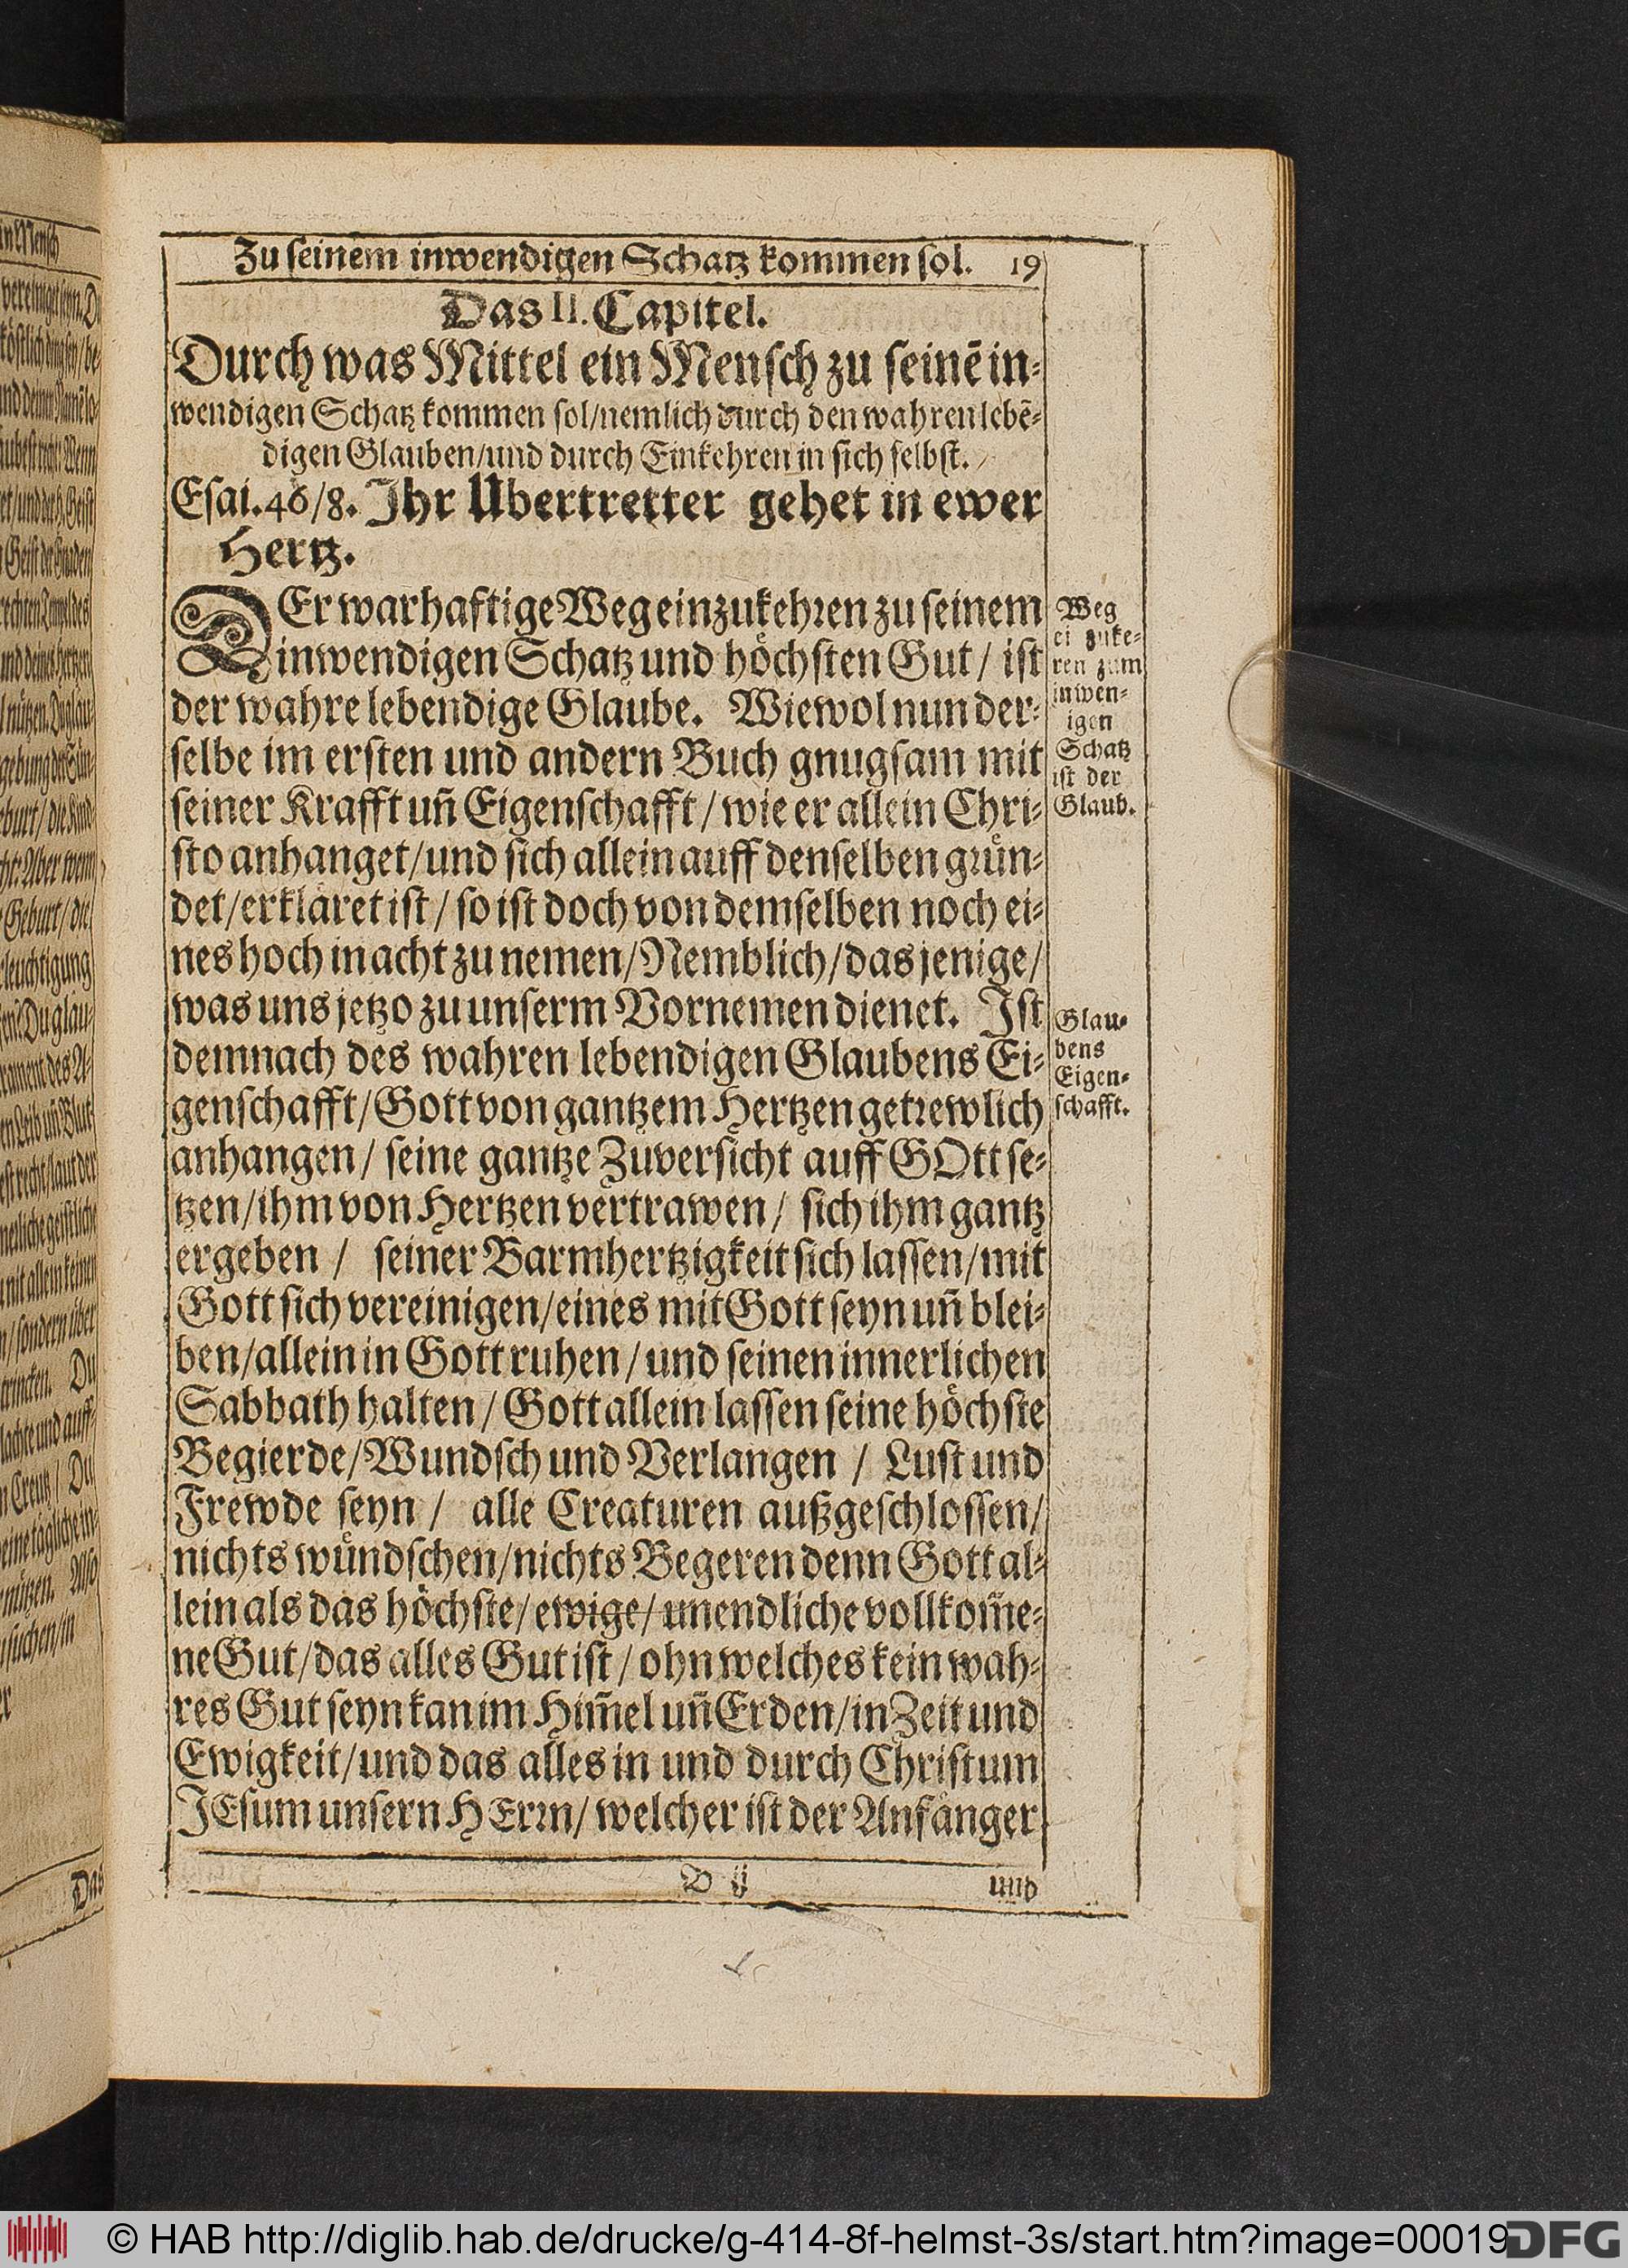 Zu ſeinem inwendigen Schatz kommen ſol. 19
Das II. Capitel.
Durch was Mittel ein Menſch zu ſeinē in-
wendigen Schatz kommen ſol/nemlich durch den wahren lebē-
digen Glauben/und durch Einkehren in ſich ſelbſt.
Eſai.46/8. Ihr Ubertretter gehet in ewer
Hertz.
DEr warhaftige Weg einzukehren zu ſeinem
inwendigen Schatz und hoͤchſten Gut/ iſt
der wahre lebendige Glaube. Wiewol nun der-
ſelbe im erſten und andern Buch gnugſam mit
ſeiner Krafft un̄ Eigenſchafft/wie er allein Chri-
ſto anhanget/und ſich allein auff denſelben gruͤn-
det/erklaͤret iſt/ſo iſt doch von demſelben noch ei-
nes hoch in acht zu nemen/Nemblich/das jenige/
was uns jetzo zu unſerm Vornemen dienet. Iſt
demnach des wahren lebendigen Glaubens Ei-
genſchafft/Gott von gantzem Hertzen getrewlich
anhangen/ ſeine gantze Zuverſicht auff GOtt ſe-
tzen/ihm von Hertzen vertrawen/ ſich ihm gantz
ergeben / ſeiner Barmhertzigkeit ſich laſſen/mit
Gott ſich vereinigen/eines mit Gott ſeyn un̄ blei-
ben/allein in Gott ruhen/und ſeinen innerlichen
Sabbath halten/Gott allein laſſen ſeine hoͤchſte
Begierde/Wundſch und Verlangen / Luſt und
Frewde ſeyn / alle Creaturen außgeſchloſſen/
nichts wuͤndſchen/nichts Begeren denn Gott al-
lein als das hoͤchſte/ewige/unendliche vollkom̄e-
ne Gut/das alles Gut iſt/ohn welches kein wah-
res Gut ſeyn kan im Him̄el un̄ Erden/in Zeit und
Ewigkeit/und das alles in und durch Chriſtum
JEſum unſern HErrn/welcher iſt der Anfaͤnger
B ij
und
Weg
ei zuke-
ren zum
inwen-
igen
Schatz
iſt der
Glaub.
Glau-
bens
Eigen-
ſchafft.
© HAB http://diglib.hab.de/drucke/g-414-8f-helmst-3s/start.htm?image=00019
DFG